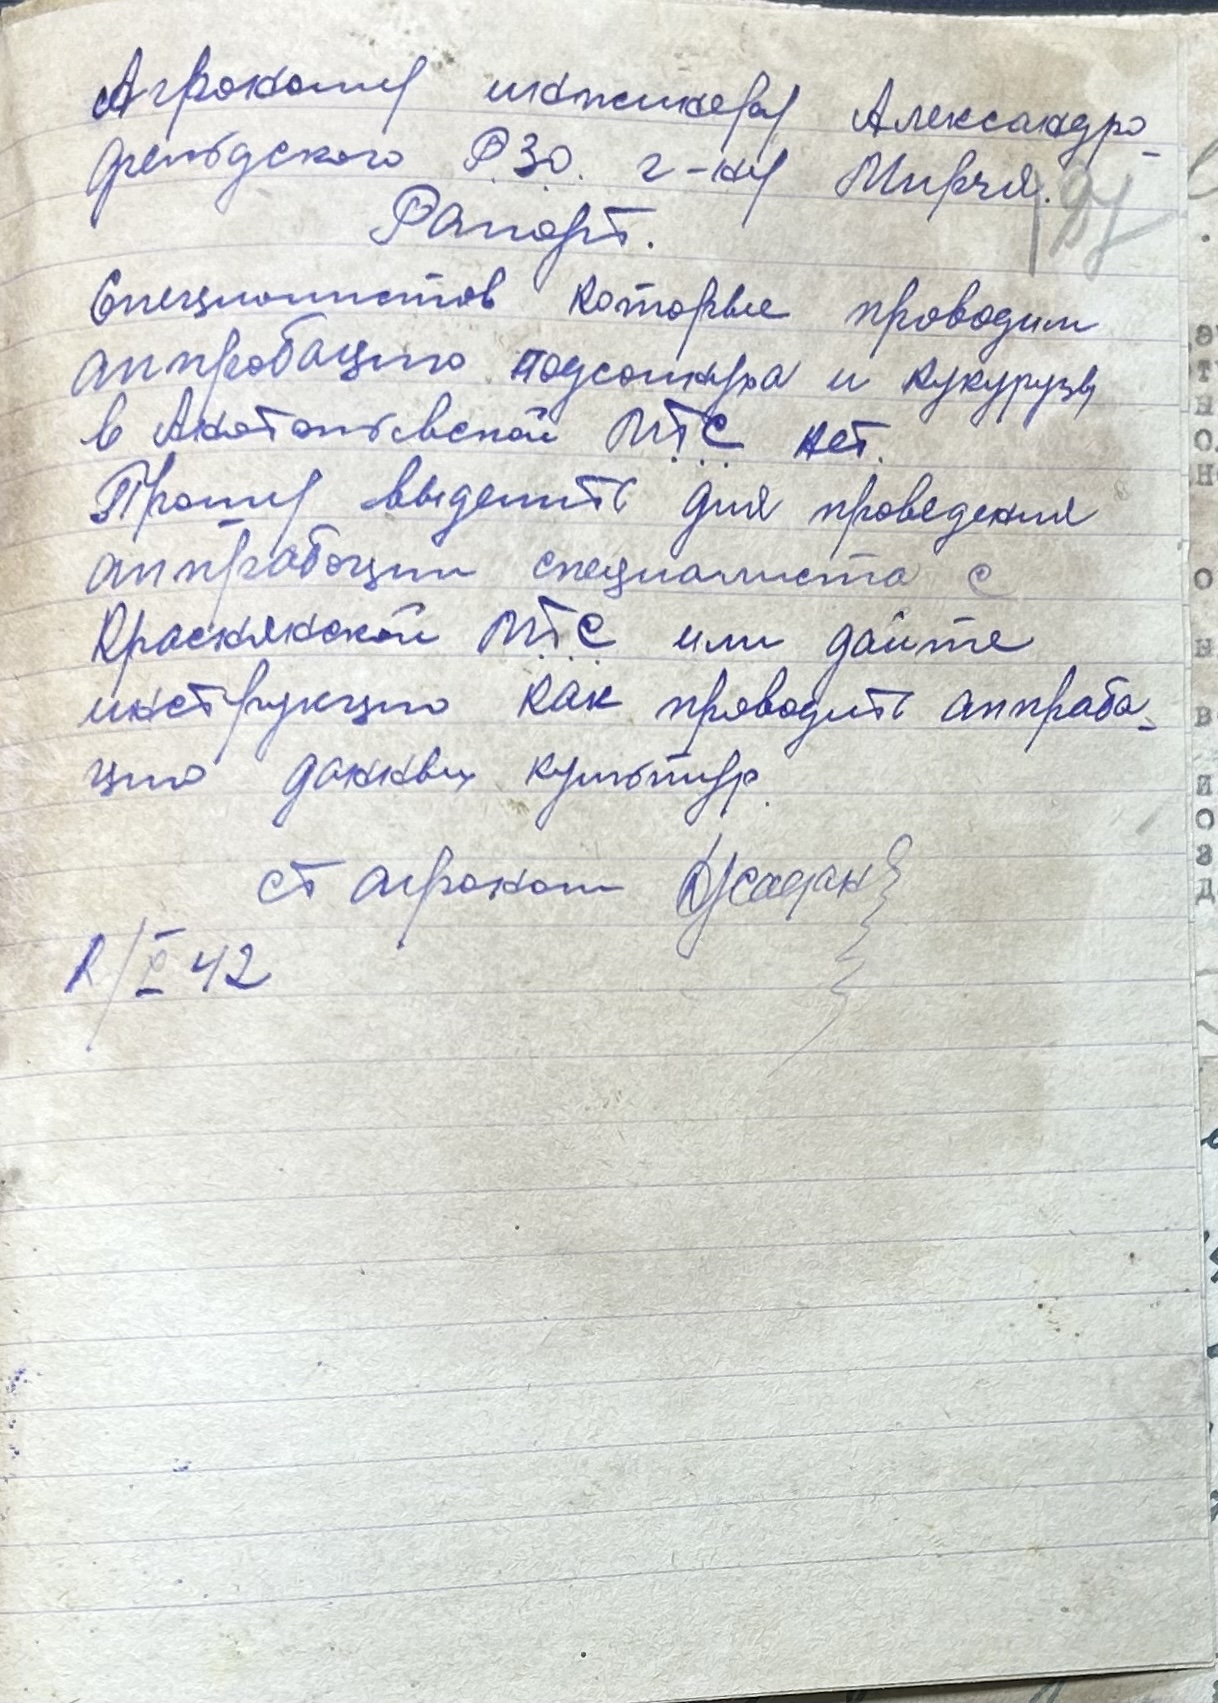 Агроному инженеру Александро-
фельдского РЗО. г-ну Мирчя.
Рапорт.
Специалистов которые проводим
аппробацию подсолнуха и кукурузы
в Анатольевской М.Т.С. нет.
Прошу выделить для проведения
аппрабоции специалиста с
Краснянской М.Т.С. или дайте
инструкцию как проводить аппраба-
цию данных культур.
ст агроном
42